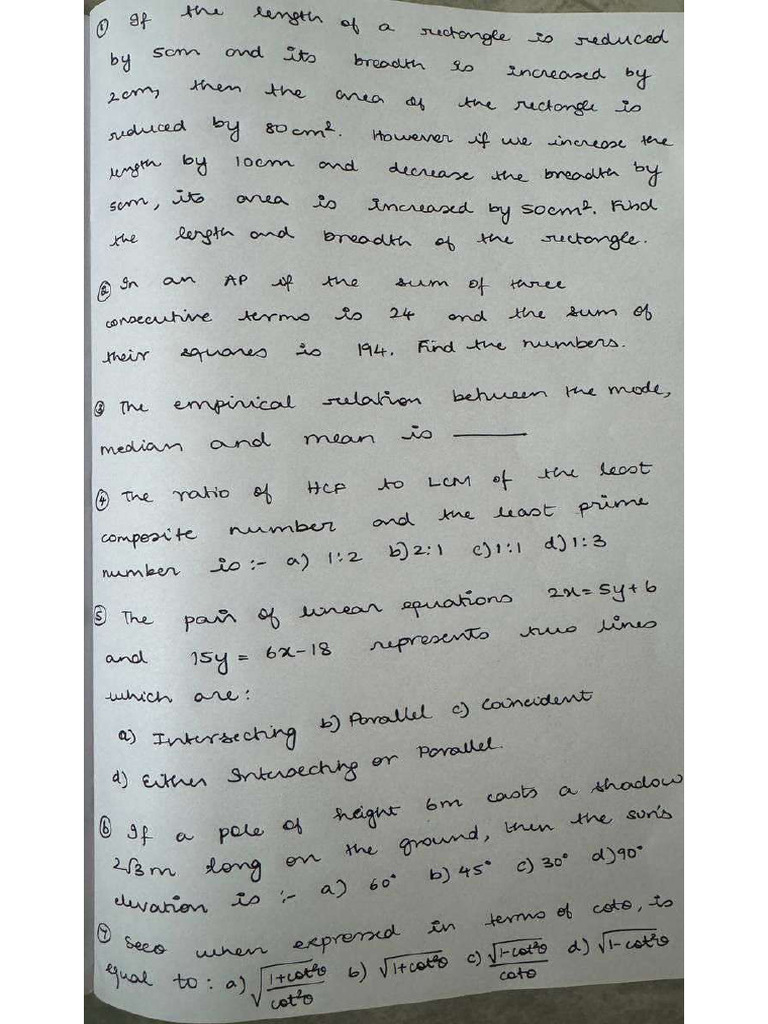 ① If the length of a rectangle is reduced
by 5cm and its breadth is increased by
2cm, then the area of the rectangle is
reduced by 80cm². However if we increase the
length by 10cm and decrease the breadth by
5cm, its area is increased by 50cm². Find
the length and breadth of the rectangle.
② In an AP if the sum of three
consecutive terms is 24 and the sum of
their squares is 194. Find the numbers.
③ The empirical relation between the mode,
median and mean is ———
④ The ratio of HCF to LCM of the least
composite number and the least prime
number is :- a) 1:2 b) 2:1 c) 1:1 d) 1:3
⑤ The pair of linear equations 2x = 5y + 6
and 15y = 6x - 18 represents two lines
which are :
a) Intersecting b) Parallel c) Coincident
d) Either Intersecting or Parallel.
⑥ If a pole of height 6m casts a shadow
2√3 m long on the ground, then the sun's
elevation is :- a) 60° b) 45° c) 30° d) 90°
⑦ Secθ when expressed in terms of cotθ, is
equal to : a) √((1+cot²θ)/cot²θ) b) √(1+cot²θ) c) √(1-cot²θ)/cotθ d) √(1-cot²θ)